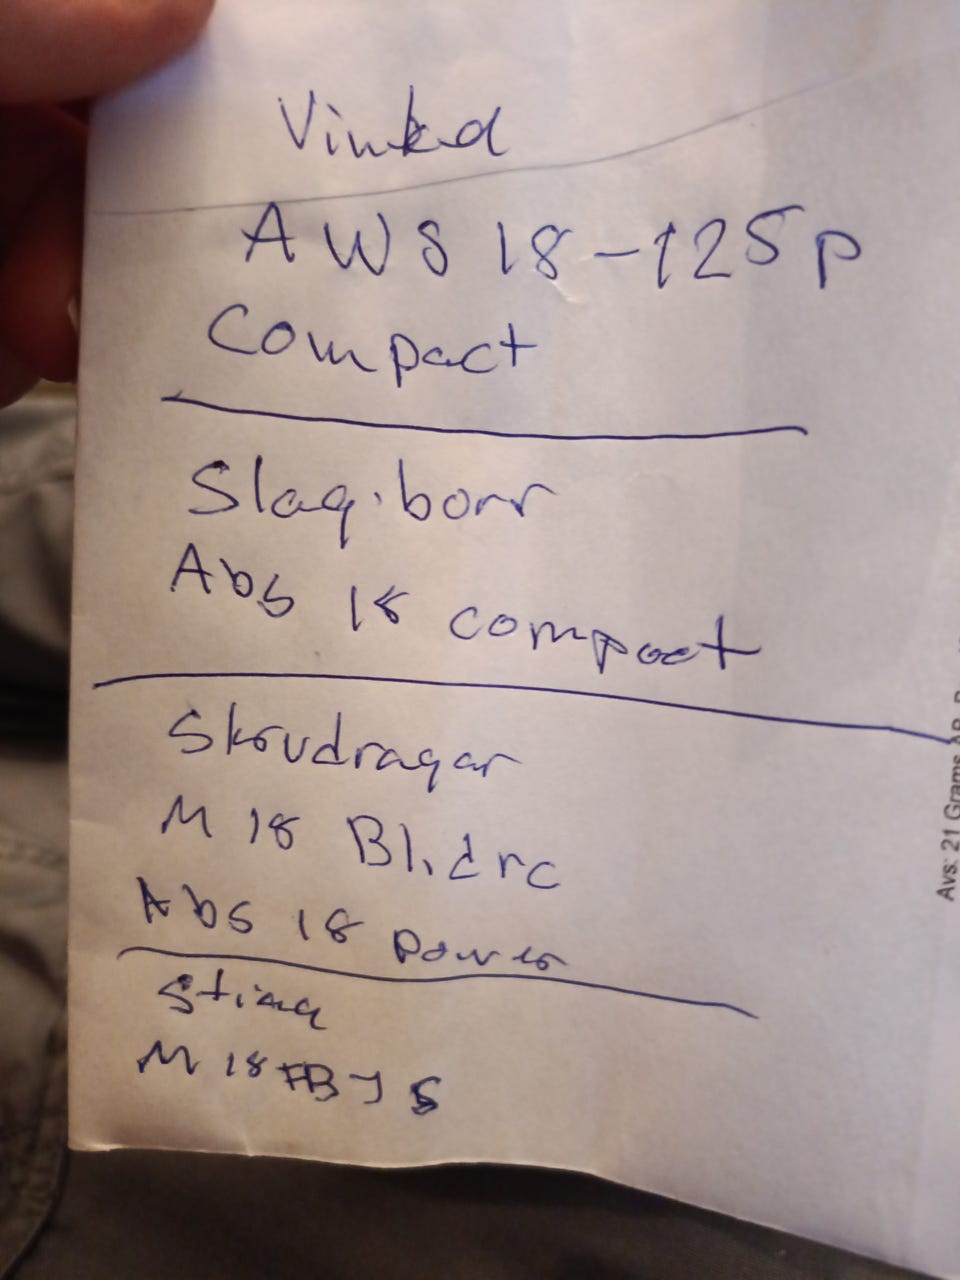 Vinkel
AWS 18-125p
Compact
Slag.borr
Abs 18 compact
Skruvdragar
M 18 Bl.drc
Abs 18 power
Sticg
M 18 FBJS
Avs: 21 Grams AB